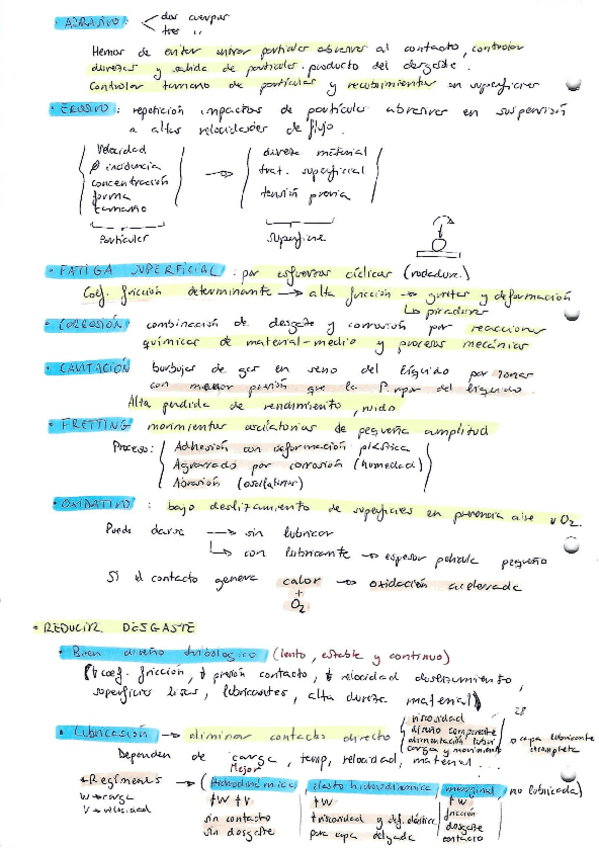 • ABRASIVO: < dos cuerpos
tres "
Hemos de evitar entrar partículas abrasivas al contacto, controlar
durezas y salida de partículas producto del desgaste.
Controlar tamaño de partículas y recubrimientos en superficies
• EROSIVO: repetición impactos de partículas abrasivas en suspensión
a altas velocidades de flujo.
Velocidad
incidencia
concentración
forma
tamaño
→
dureza material
trat. superficial
tensión previa
Partículas
Superficie
• FATIGA SUPERFICIAL: por esfuerzos cíclicos (rodadura)
Coef. fricción determinante → alta fricción → grietas y deformación
↳ picaduras
• CORROSIÓN: combinación de desgaste y corrosión por reacciones
químicas de material-medio y procesos mecánicos
• CAVITACIÓN burbujas de gas en seno del líquido por zonas
con menor presión que la P. vapor del líquido.
Alta perdida de rendimiento, ruido
• FRETTING movimientos oscilatorios de pequeña amplitud
Proceso:
Adhesión con deformación plástica
Agravado por corrosión (humedad)
Abrasión (oscilatorio)
• OXIDATIVO: bajo deslizamiento de superficies en presencia aire u O2.
Puede darse → sin lubricar
↳ con lubricante → espesor película pequeño
Si el contacto genera calor → oxidación acelerada
+
O2
• REDUCIR DESGASTE
• Buen diseño tribológico (lento, estable y continuo)
(↓ coef. fricción, ↓ presión contacto, ↓ velocidad deslizamiento,
superficies lisas, lubricantes, alta dureza material)
• Lubricación → eliminar contacto directo
viscosidad
diseño componente
alimentación lubri
carga y movimiento
28
capa lubricante
incompleta
Dependen de carga, temp, velocidad, material ...
Mejor
* Regímenes → (hidrodinámica, elasto hidrodinámica, marginal, no lubricada)
W → carga
V → velocidad
↑W ↑V
sin contacto
sin desgaste
↑W
↑viscosidad y def. elástica
para capa delgada
↑W
fricción
desgaste
contacto